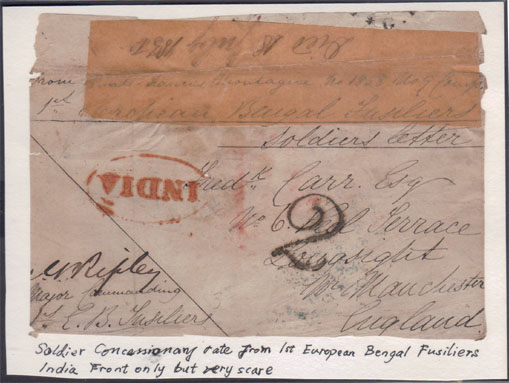 Died 18 July 1850
from
1st European Bengal Fusiliers
Soldiers letter
INDIA
Fredk Carr. Esq
No 6 Terrace
2
Longsight
Nr Manchester
England
Ripley
Major Commanding
1st E. B. Fusiliers
Soldier Concessionary rate from 1st European Bengal Fusiliers
India Front only but very scare